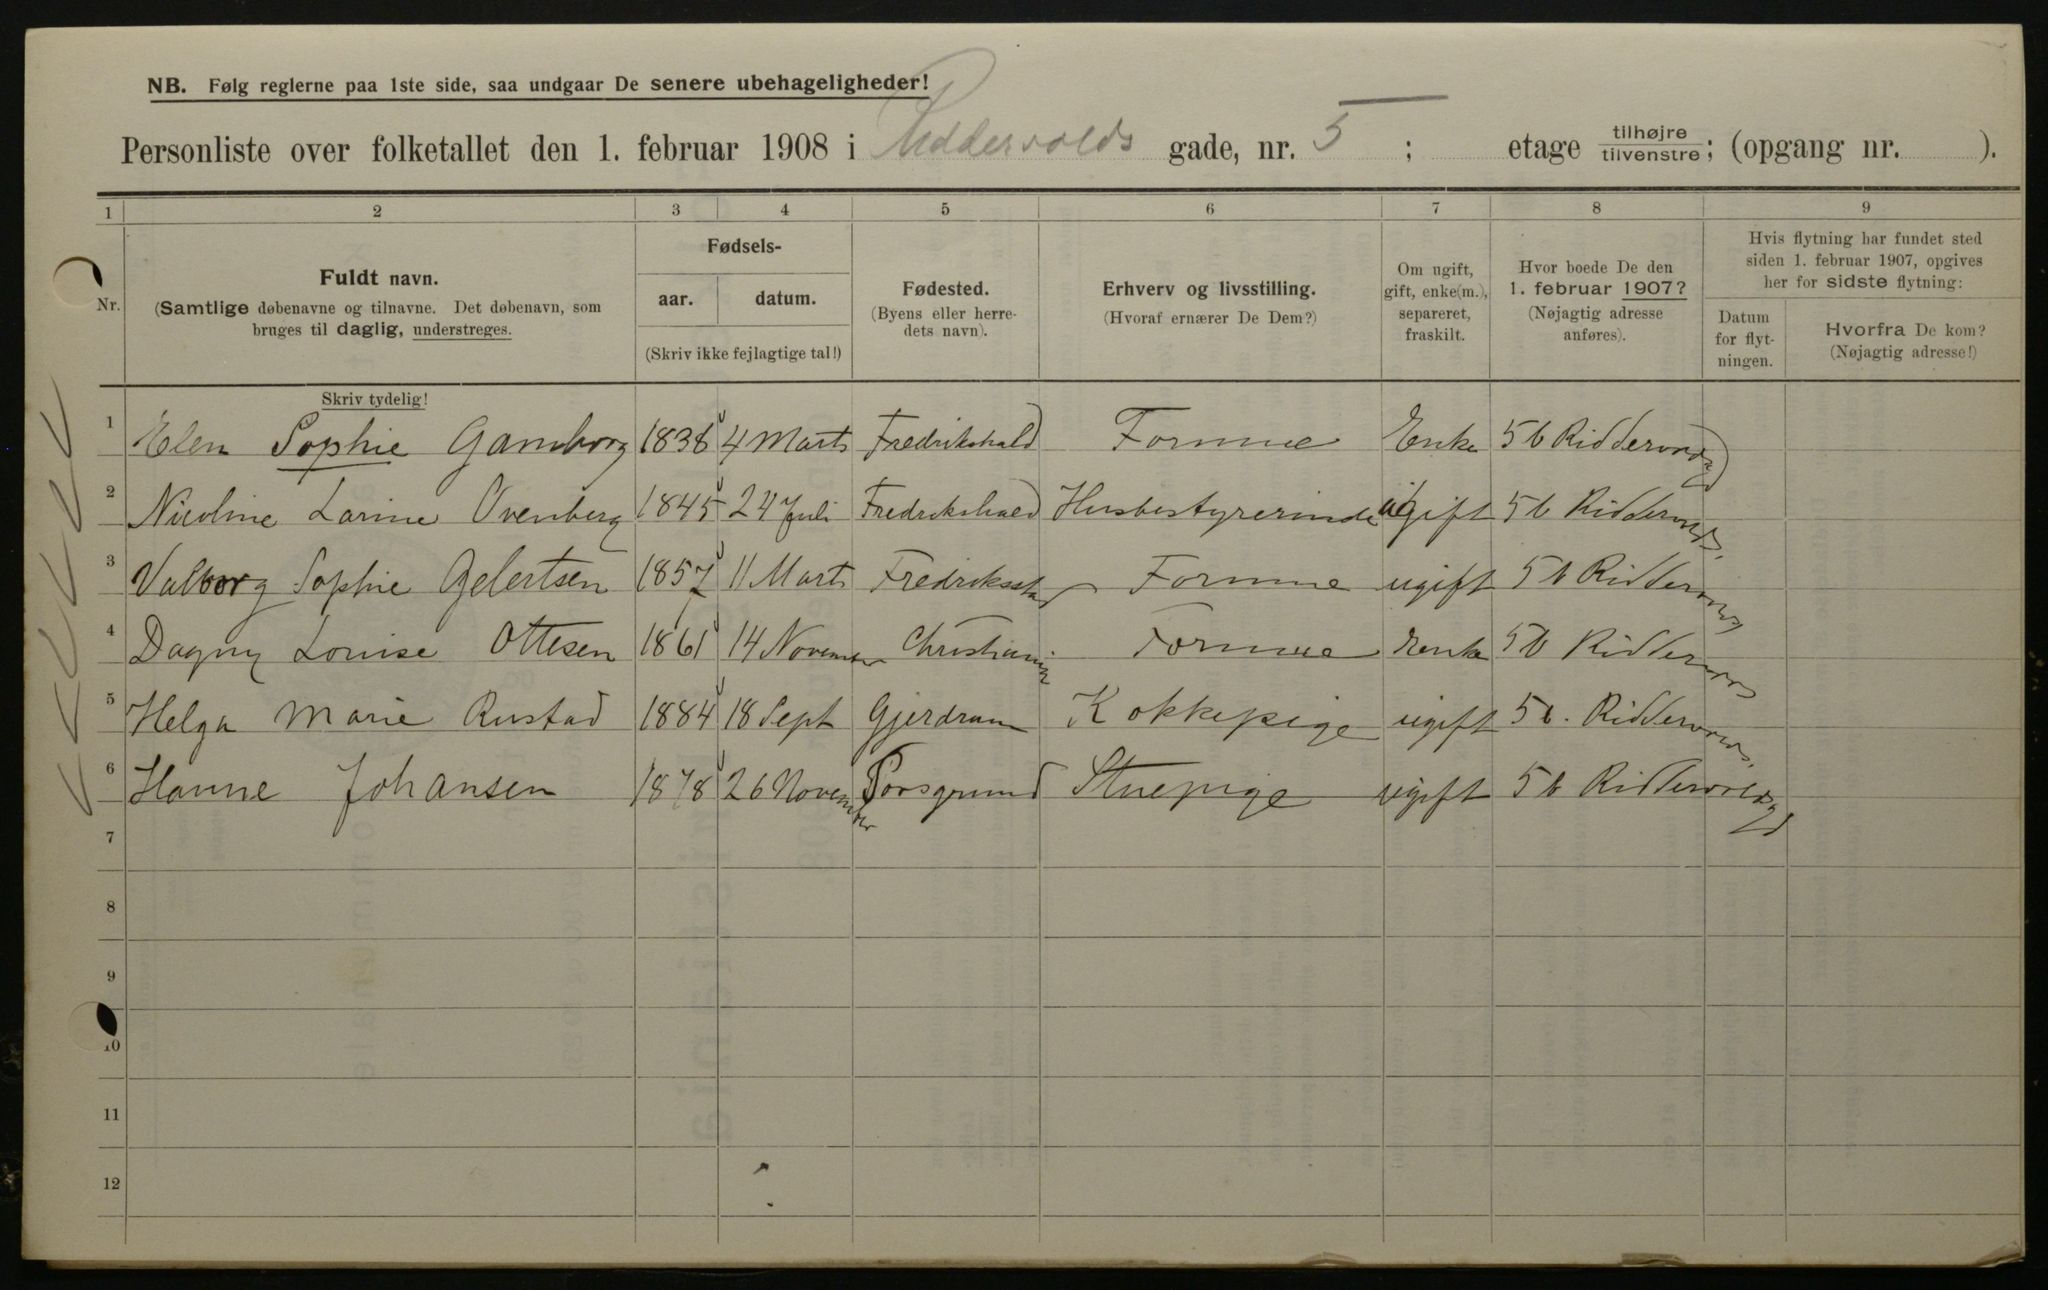 NB. Følg reglerne paa 1ste side, saa undgaar De senere ubehageligheder!
Personliste over folketallet den 1. februar 1908 i Riddervolds gade, nr. 5 ; etage tilhøjre / tilvenstre ; (opgang nr. ).
1 2 3 4 5 6 7 8 9
Nr. Fuldt navn. (Samtlige døbenavne og tilnavne. Det døbenavn, som bruges til daglig, understreges. Fødsels- aar. datum. (Skriv ikke fejlagtige tal!) Fødested. (Byens eller herredets navn). Erhverv og livsstilling. (Hvoraf ernærer De Dem?) Om ugift, gift, enke(m.), separeret, fraskilt. Hvor boede De den 1. februar 1907? (Nøjagtig adresse anføres). Hvis flytning har fundet sted siden 1. februar 1907, opgives her for sidste flytning: Datum for flytningen. Hvorfra De kom? (Nøjagtig adresse!)
Skriv tydelig!
1 Elen Sophie Gamborg 1838 4 Marts Fredrikshald Formue Enke 5 b Riddervoldsgd
2 Nicoline Larine Ovenberg 1845 24 Juli Fredrikshald Husbestyrerinde ugift 5 b Riddervolds.
3 Valborg Sophie Gelertsen 1857 11 Marts Fredriksstad Formue ugift 5 b Riddervolds
4 Dagny Louise Ottesen 1861 14 November Christiania Formue Enke 5 b Riddervolds
5 Helga Marie Rustad 1884 18 Sept Gjerdrum Kokkepige ugift 5 b. Riddervolds.
6 Hanne Johansen 1878 26 November Porsgrund Stuepige ugift 5 b Riddervoldsgd
7
8
9
10
11
12